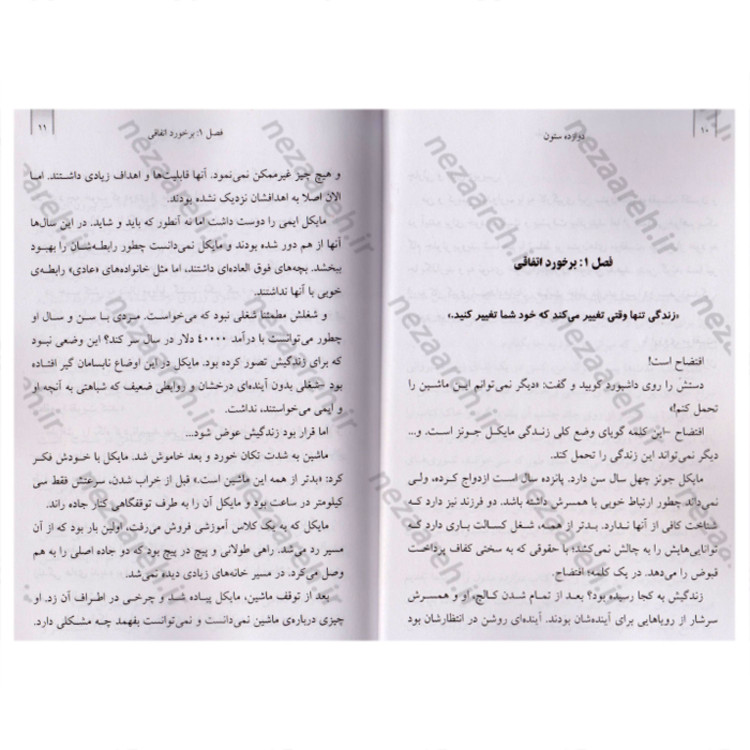 ۱۰
دوازده ستون
فصل ۱: برخورد اتفاقی
«زندگی تنها وقتی تغییر می‌کند که خود شما تغییر کنید.»
افتضاح است!
دستش را روی داشبورد کوبید و گفت: «دیگر نمی‌توانم این ماشین را
تحمل کنم!»
افتضاح -این کلمه گویای وضع کلی زندگی مایکل جونز است. و...
دیگر نمی‌تواند این زندگی را تحمل کند.
مایکل جونز چهل سال سن دارد. پانزده سال است ازدواج کرده، ولی
نمی‌داند چطور ارتباط خوبی با همسرش داشته باشد. دو فرزند نیز دارد که
شناخت کافی از آنها ندارد. بدتر از همه، شغل کسالت باری دارد که
توانایی‌هایش را به چالش نمی‌کشد؛ با حقوقی که به سختی کفاف پرداخت
قبوض را می‌دهد. در یک کلمه؛ افتضاح.
زندگیش به کجا رسیده بود؟ بعد از تمام شدن کالج، او و همسرش
سرشار از رویاهایی برای آینده‌شان بودند. آینده‌ای روشن در انتظارشان بود
فصل ۱: برخورد اتفاقی
۱۱
و هیچ چیز غیرممکن نمی‌نمود. آنها قابلیت‌ها و اهداف زیادی داشتند. اما
الان اصلا به اهدافشان نزدیک نشده بودند.
مایکل ایمی را دوست داشت اما نه آنطور که باید و شاید. در این سال‌ها
آنها از هم دور شده بودند و مایکل نمی‌دانست چطور رابطه‌شان را بهبود
ببخشد. بچه‌های فوق العاده‌ای داشتند، اما مثل خانواده‌های «عادی» رابطه‌ی
خوبی با آنها نداشتند.
و شغلش مطمئنا شغلی نبود که می‌خواست. مردی با سن و سال او
چطور می‌توانست با درآمد ۴۰۰۰۰ دلار در سال سر کند؟ این وضعی نبود
که برای زندگیش تصور کرده بود. مایکل در این اوضاع نابسامان گیر افتاده
بود -شغلی بدون آینده‌ای درخشان و روابطی ضعیف که شباهتی به آنچه او
و ایمی می‌خواستند، نداشت.
اما قرار بود زندگیش عوض شود...
ماشین به شدت تکان خورد و بعد خاموش شد. مایکل با خودش فکر
کرد: «بدتر از همه این ماشین است.» قبل از خراب شدن، سرعتش فقط سی
کیلومتر در ساعت بود و مایکل آن را به طرف توقفگاهی کنار جاده راند.
مایکل که به یک کلاس آموزشی فروش می‌رفت، اولین بار بود که از آن
مسیر رد می‌شد. راهی طولانی و پیچ در پیچ بود که دو جاده اصلی را به هم
وصل می‌کرد. در مسیر خانه‌های زیادی دیده نمی‌شد.
بعد از توقف ماشین، مایکل پیاده شد و چرخی در اطراف آن زد. او
چیزی درباره‌ی ماشین نمی‌دانست و نمی‌توانست بفهمد چه مشکلی دارد.
nezaareh.ir
nezaareh.ir
nezaareh.ir
nezaareh.ir
nezaareh.ir
nezaareh.ir